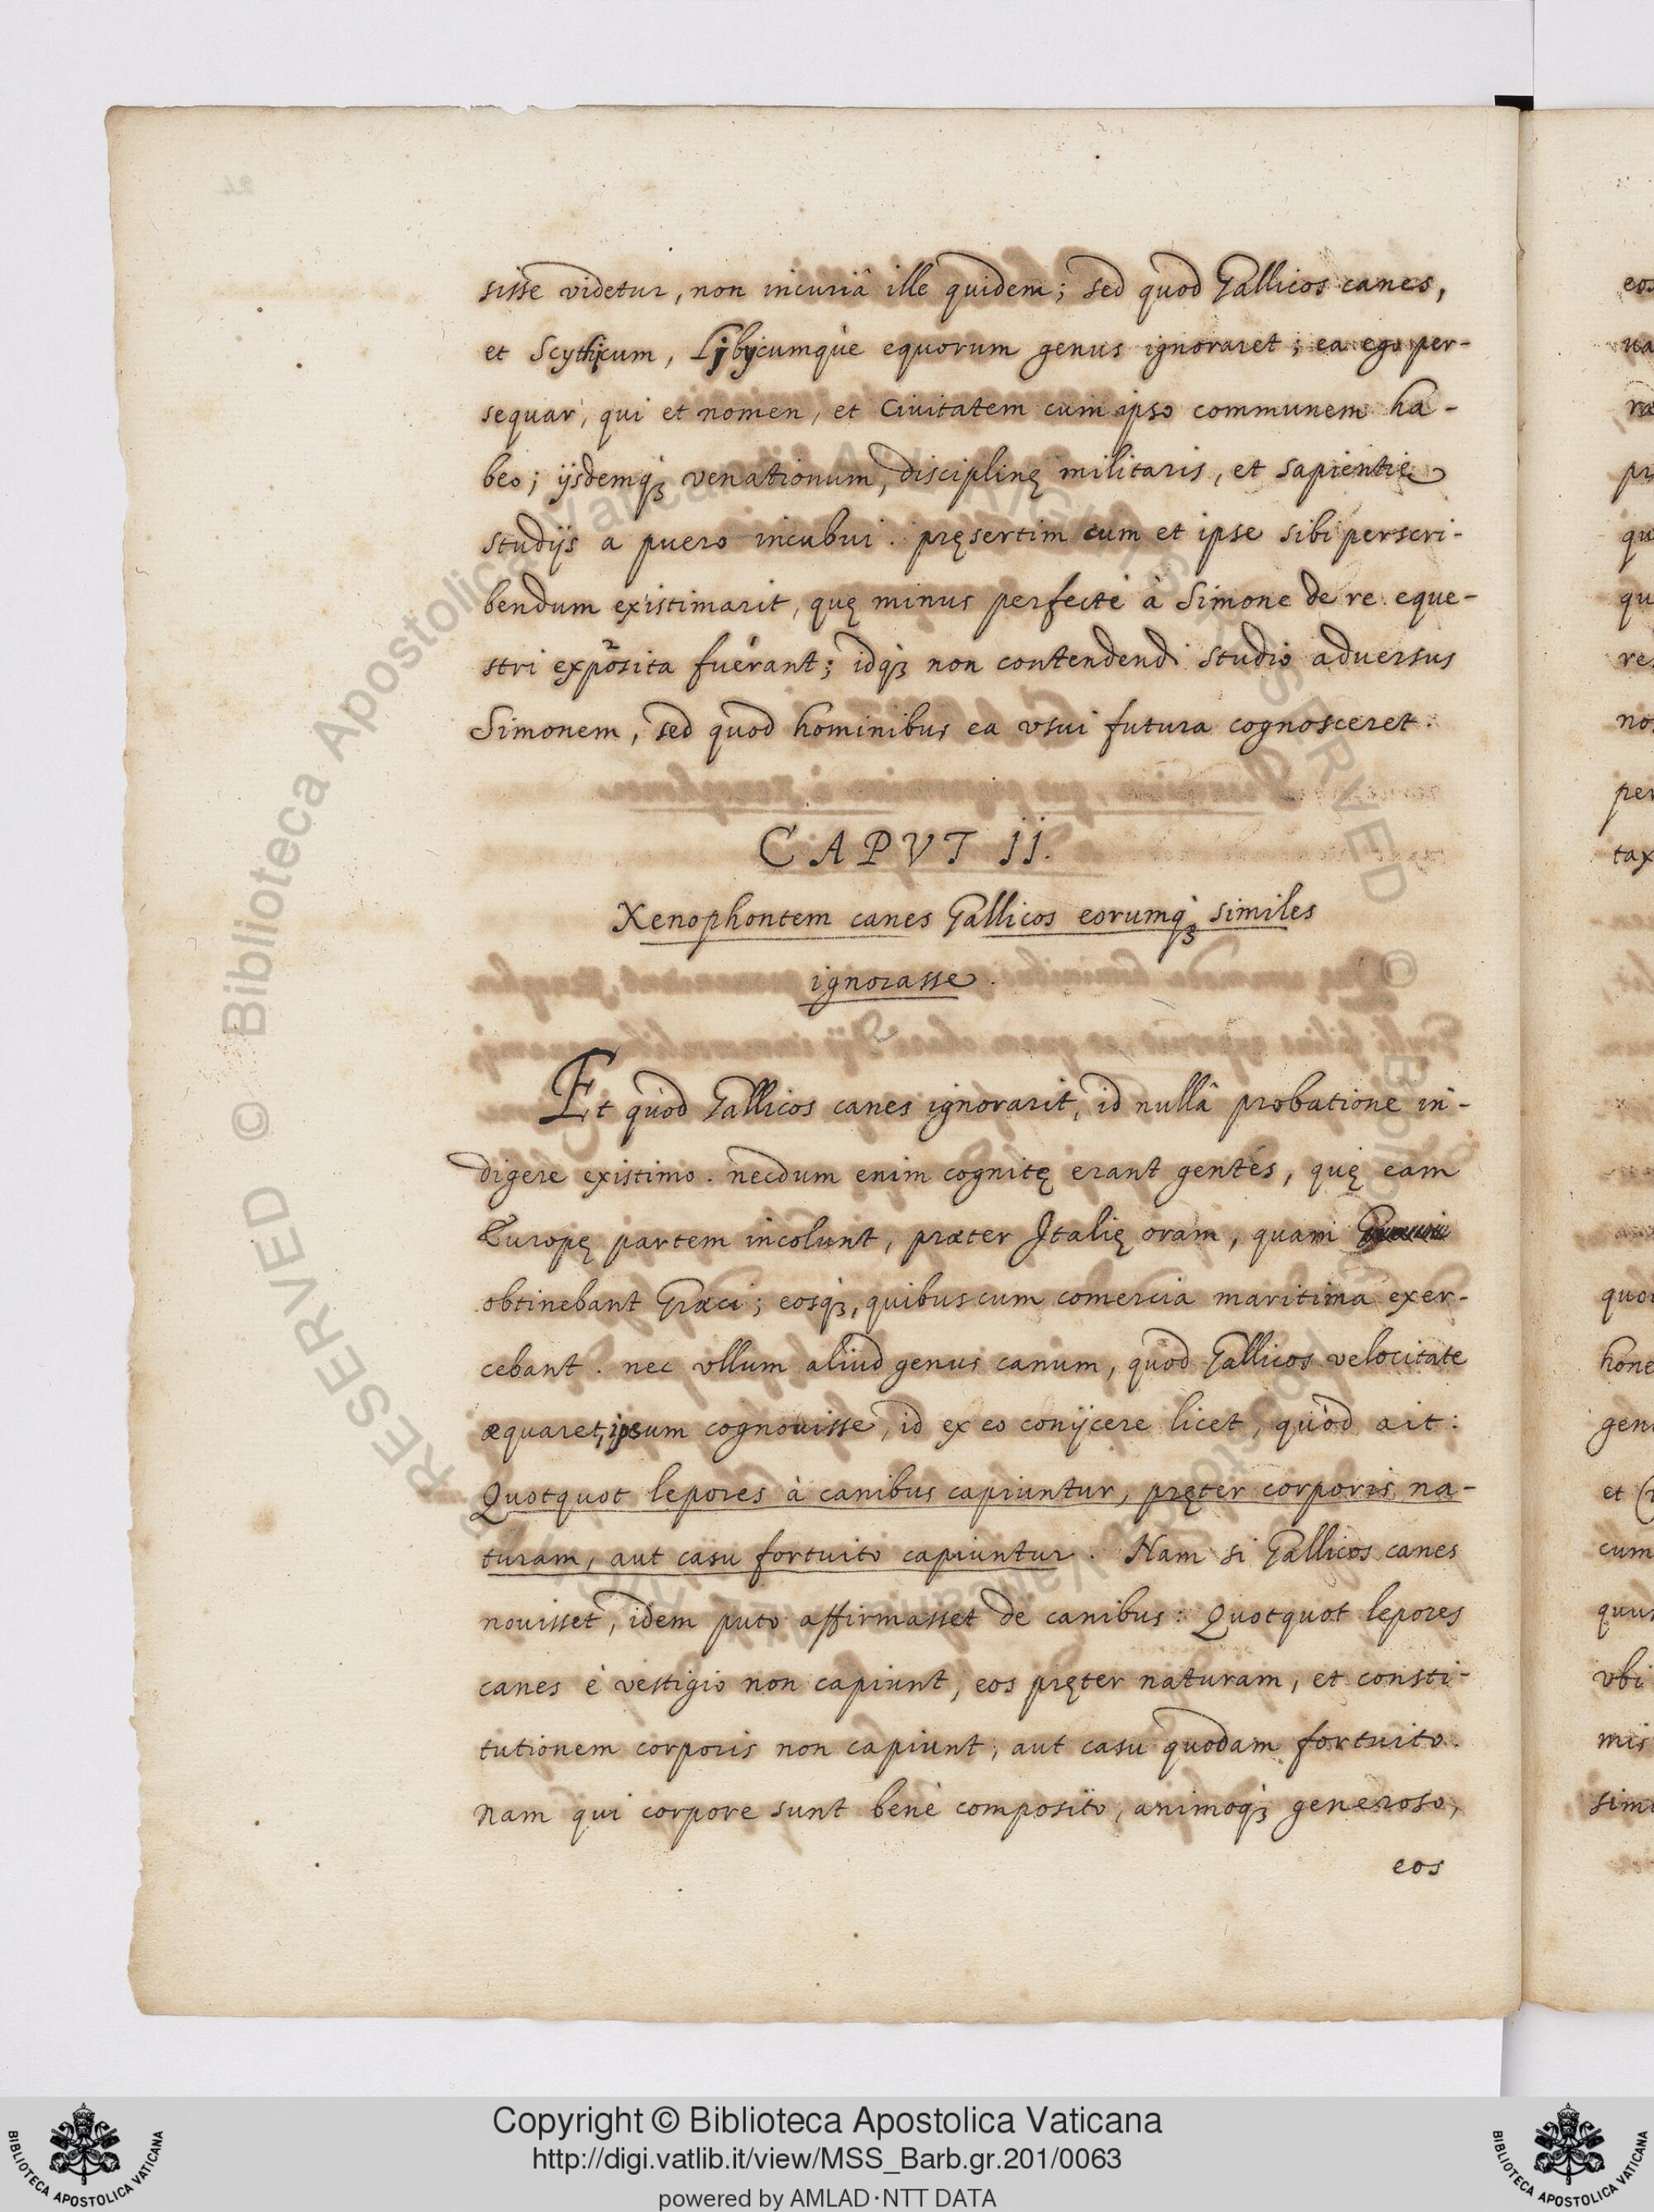 sisse videtur, non incuriâ ille quidem; sed quod Gallicos canes,
et Scythicum, Lybicumquè equorum genus ignoraret; ea ego per-
sequar, qui et nomen, et Ciuitatem cum ipso communem ha-
beo; ijsdemq́ꝫ venationum, disciplinę militaris, et sapientię
studijs a puero incubui. pręsertim cum et ipse sibi perscri-
bendum existimarit, quę minus perfectè à Simone de re eque-
stri exposita fuérant; idq́ꝫ non contendendi studio aduersus
Simonem, sed quod hominibus ea vsui futura cognosceret.
CAPVT II.
Xenophontem canes Gallicos eorumq́ꝫ similes
ignorasse.
Et quòd Gallicos canes ignorarit, id nullâ probatione in-
digere existimo. necdum enim cognitę erant gentes, quę eam
Europę partem incolunt, præter Italię oram, quam
obtinebant Græci; eosq́ꝫ, quibuscum comercia maritima exer-
cebant. nec vllum aliud genus canum, quòd Gallicos velocitate
æquaret, ipsum cognouisse, id ex eo conijcere licet, quòd ait:
Quotquot lepores à canibus capiuntur, pręter corporis na-
turam, aut casu fortuito capiuntur. Nam si Gallicos canes
nouisset, idem puto affirmasset de canibus: Quotquot lepores
canes è vestigio non capiunt, eos pręter naturam, et consti-
tutionem corporis non capiunt, aut casu quodam fortuito.
nam qui corpore sunt benè composito, animoq́ꝫ generoso,
eos
© Biblioteca Apostolica Vaticana
RESERVED
Copyright © Biblioteca Apostolica Vaticana
http://digi.vatlib.it/view/MSS_Barb.gr.201/0063
powered by AMLAD·NTT DATA
BIBLIOTECA APOSTOLICA VATICANA
BIBLIOTECA APOSTOLICA VATICANA